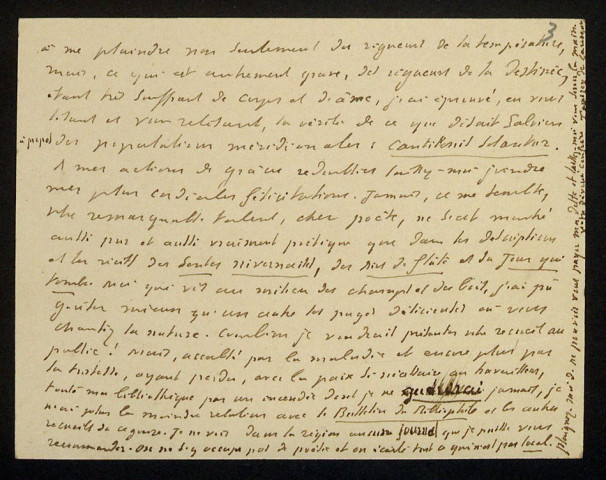 3
à me plaindre non seulement des rigueurs de la température,
mais, ce qui est autrement grave, des rigueurs de la Destinée,
étant très souffrant de corps et d'âme, j'ai éprouvé, en vous
lisant et vous relisant, la vérité de ce que disait Salvien
à propos des populations méridionales : cantilenis
A mes actions de grâces redoublées laissez-moi joindre
mes plus cordiales félicitations. Jamais, ce me semble,
votre remarquable talent, cher poète, ne s'est montré
aussi pur et aussi vraiment poétique que dans les descriptions
et les récits des Contes nivernais, des Airs de flûte et du Jour qui
tombe. Moi qui vis au milieu des champs et des bois, j'ai pu
goûter mieux qu'un autre les pages délicieuses où vous
chantez la nature. Combien je voudrais présenter votre recueil au
public ! Mais, accablé par la maladie et encore plus par
la tristesse, ayant perdu, avec la paix si nécessaire au travailleur,
toute ma bibliothèque par un incendie dont je ne guérirai jamais, je
n'ai plus la moindre relation avec le Bulletin du Bibliophile et les autres
recueils de ce genre. Je ne vois dans la région aucun journal que je puisse vous
recommander. On ne s'y occupe pas de poésie et on écarte tout ce qui n'est pas local.
Plaignez-moi de ne pouvoir vous payer ma dette et laissez-moi vous serrer la main